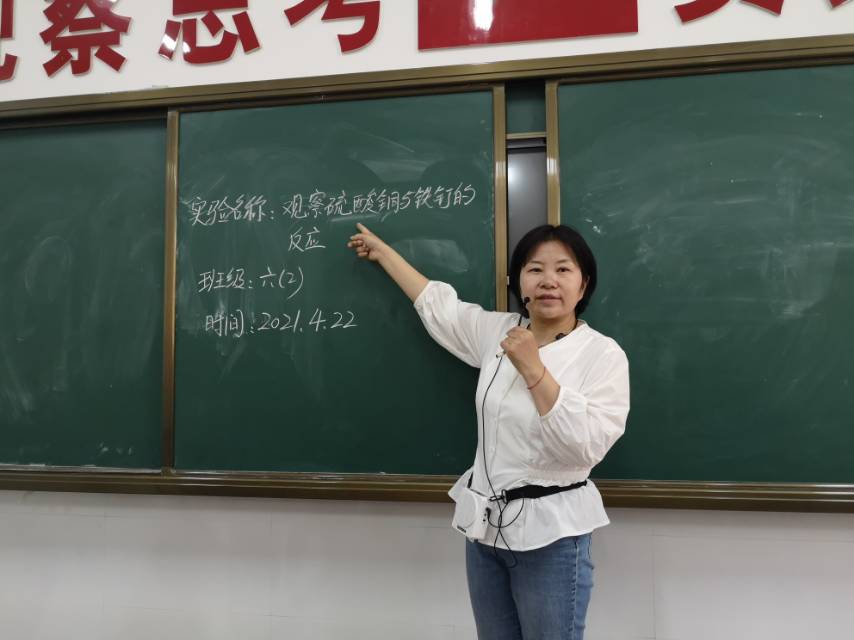 察思考
实验名称：观察硫酸铜与铁钉的
反应
班级：六(2)
时间：2021.4.22